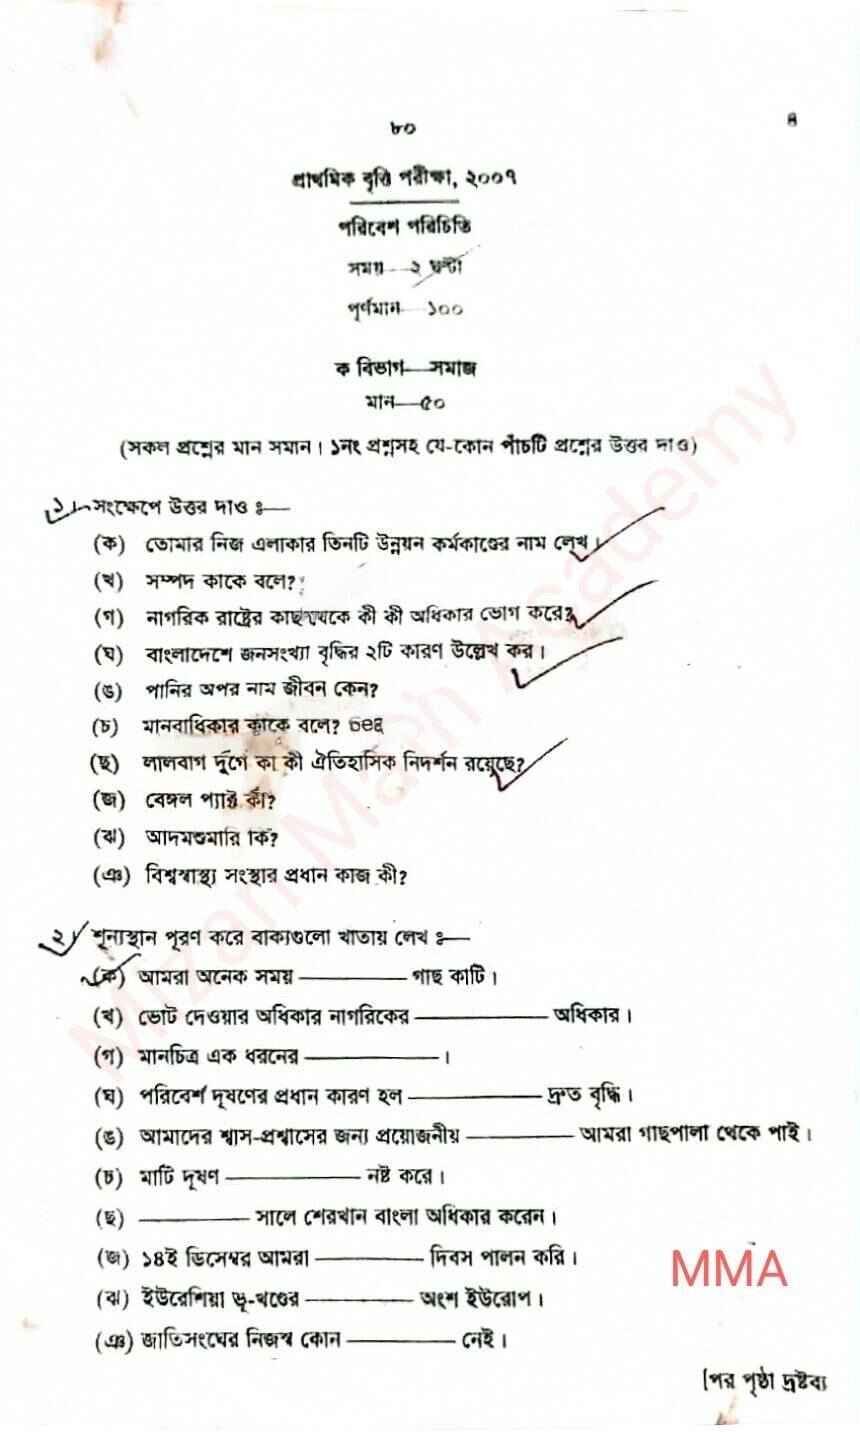 ৪
৮০
প্রাথমিক বৃত্তি পরীক্ষা, ২০০৭
পরিবেশ পরিচিতি
সময়—২ ঘণ্টা
পূর্ণমান—১০০
ক বিভাগ—সমাজ
মান—৫০
(সকল প্রশ্নের মান সমান। ১নং প্রশ্নসহ যে-কোন পাঁচটি প্রশ্নের উত্তর দাও)
১। সংক্ষেপে উত্তর দাও ঃ—
(ক) তোমার নিজ এলাকার তিনটি উন্নয়ন কর্মকাণ্ডের নাম লেখ।
(খ) সম্পদ কাকে বলে?
(গ) নাগরিক রাষ্ট্রের কাছ থেকে কী কী অধিকার ভোগ করে?
(ঘ) বাংলাদেশে জনসংখ্যা বৃদ্ধির ২টি কারণ উল্লেখ কর।
(ঙ) পানির অপর নাম জীবন কেন?
(চ) মানবাধিকার কাকে বলে?
(ছ) লালবাগ দুর্গে কী কী ঐতিহাসিক নিদর্শন রয়েছে?
(জ) বেঙ্গল প্যাক্ট কী?
(ঝ) আদমশুমারি কি?
(ঞ) বিশ্বস্বাস্থ্য সংস্থার প্রধান কাজ কী?
২। শূন্যস্থান পূরণ করে বাক্যগুলো খাতায় লেখ ঃ—
(ক) আমরা অনেক সময় ———— গাছ কাটি।
(খ) ভোট দেওয়ার অধিকার নাগরিকের ———— অধিকার।
(গ) মানচিত্র এক ধরনের ————।
(ঘ) পরিবেশ দূষণের প্রধান কারণ হল ———— দ্রুত বৃদ্ধি।
(ঙ) আমাদের শ্বাস-প্রশ্বাসের জন্য প্রয়োজনীয় ———— আমরা গাছপালা থেকে পাই।
(চ) মাটি দূষণ ———— নষ্ট করে।
(ছ) ———— সালে শেরখান বাংলা অধিকার করেন।
(জ) ১৪ই ডিসেম্বর আমরা ———— দিবস পালন করি।
(ঝ) ইউরেশিয়া ভূ-খণ্ডের ———— অংশ ইউরোপ।
(ঞ) জাতিসংঘের নিজস্ব কোন ———— নেই।
MMA
[পর পৃষ্ঠা দ্রষ্টব্য
Mizan Math Academy